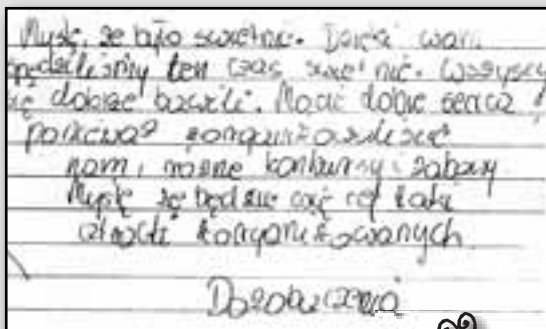 Myślę, że było świetnie. Dzięki wam
spędziliśmy ten czas świetnie. Wszyscy
się dobrze bawili. Macie dobre serca i
ponieważ zorganizowaliście
nam, różne konkursy i zabawy
Myślę że będzie
zorganizowanych
Do zobaczenia